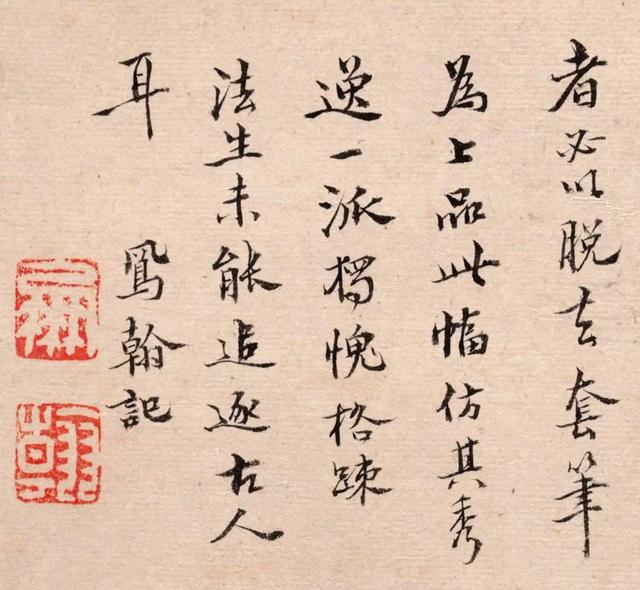 者必以脱去套筆
為上品此幅仿其秀
逸一派獨愧格踈
法生未能追逐古人
耳
鳳翰記